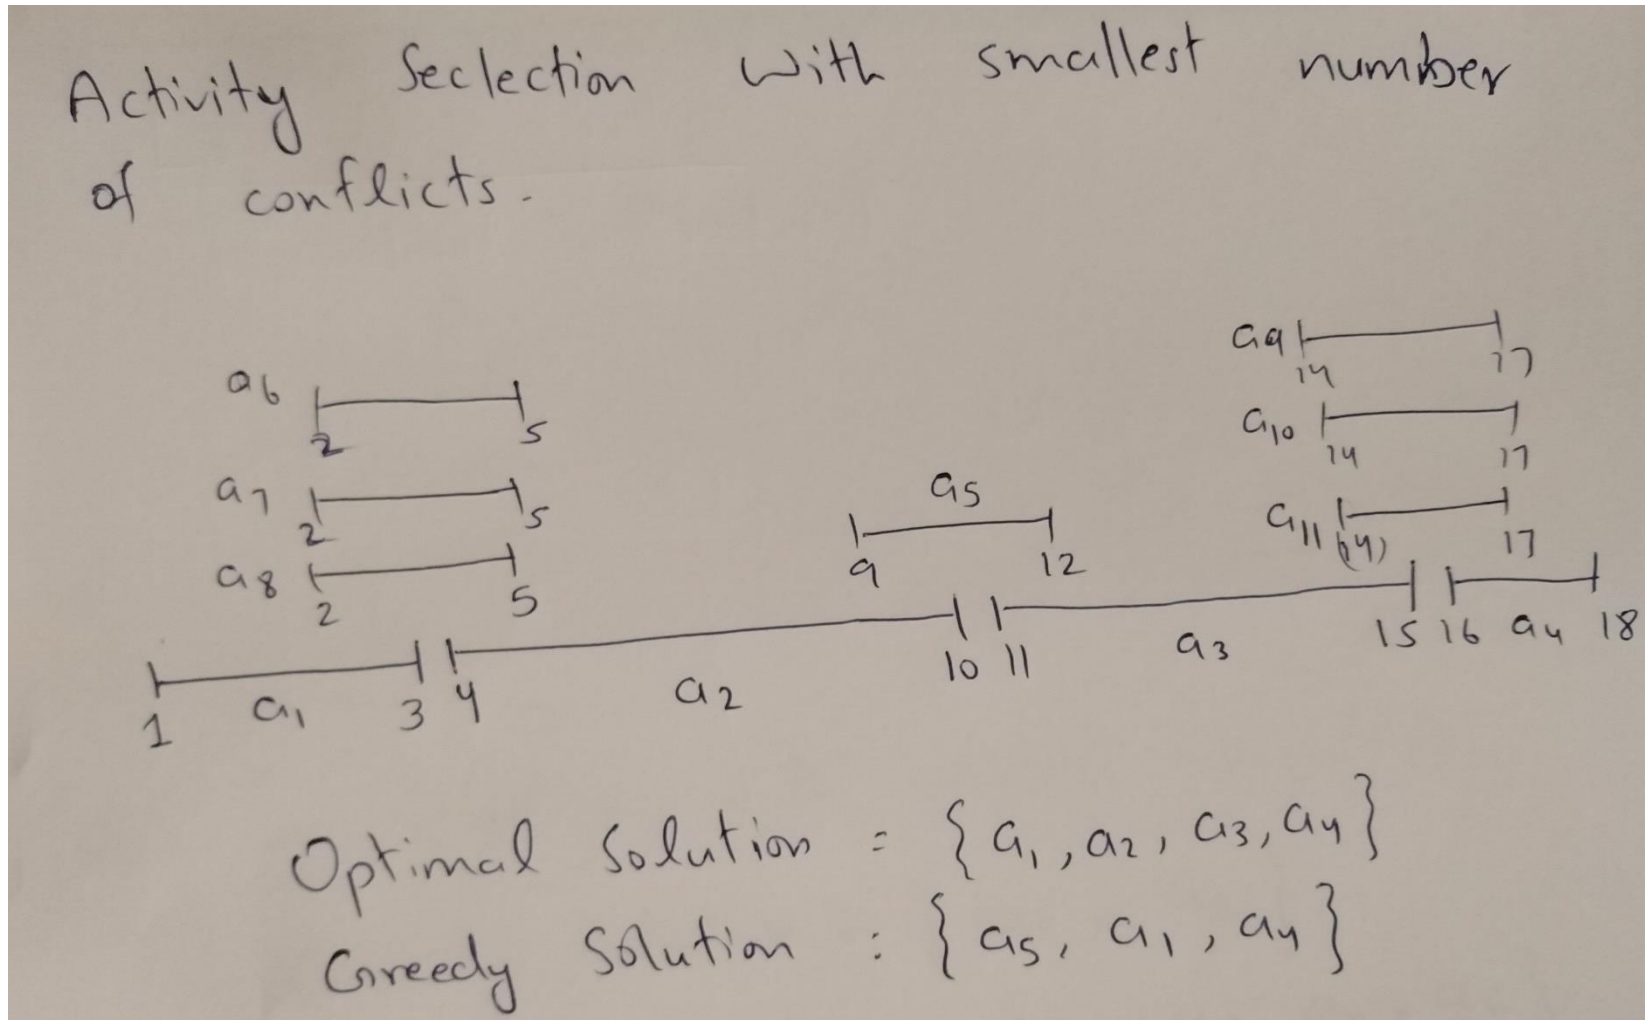 Activity Seclection with smallest number
of conflicts.
a9
14 17
a6
2 5
a10
14 17
a7
2 5
a5
9 12
a11
(14) 17
a8
2 5
1 a1 3 4 a2 10 11 a3 15 16 a4 18
Optimal Solution = { a1, a2, a3, a4 }
Greedy Solution : { a5, a1, a4 }